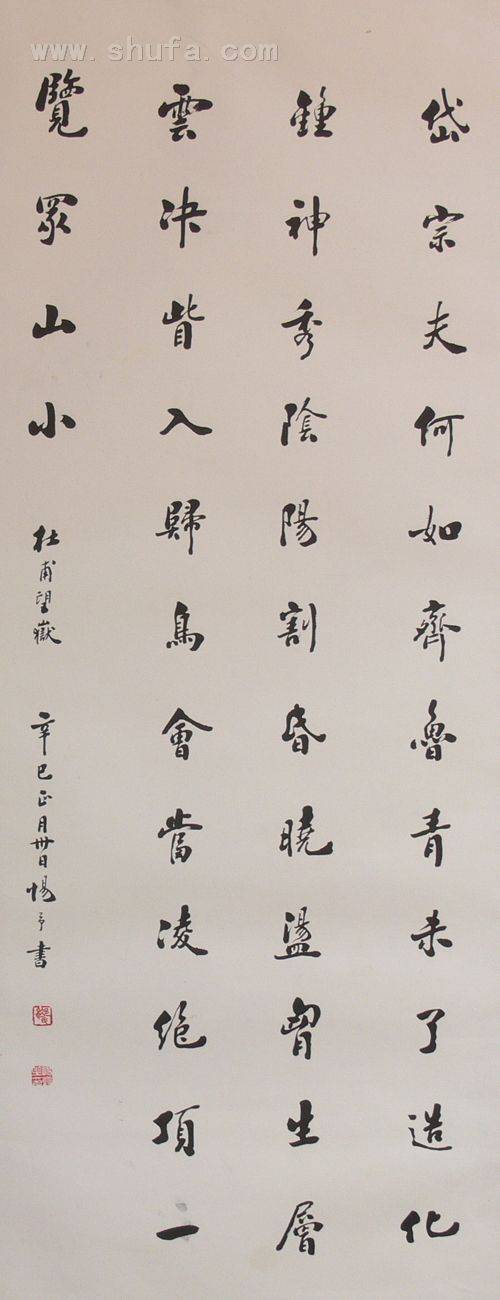 www.shufa.com
岱宗夫何如齊魯青未了造化
鍾神秀陰陽割昏曉盪胷生層
雲决眥入歸鳥會當凌絶頂一
覽眾山小
杜甫望嶽
辛巳正月卅日惕予書